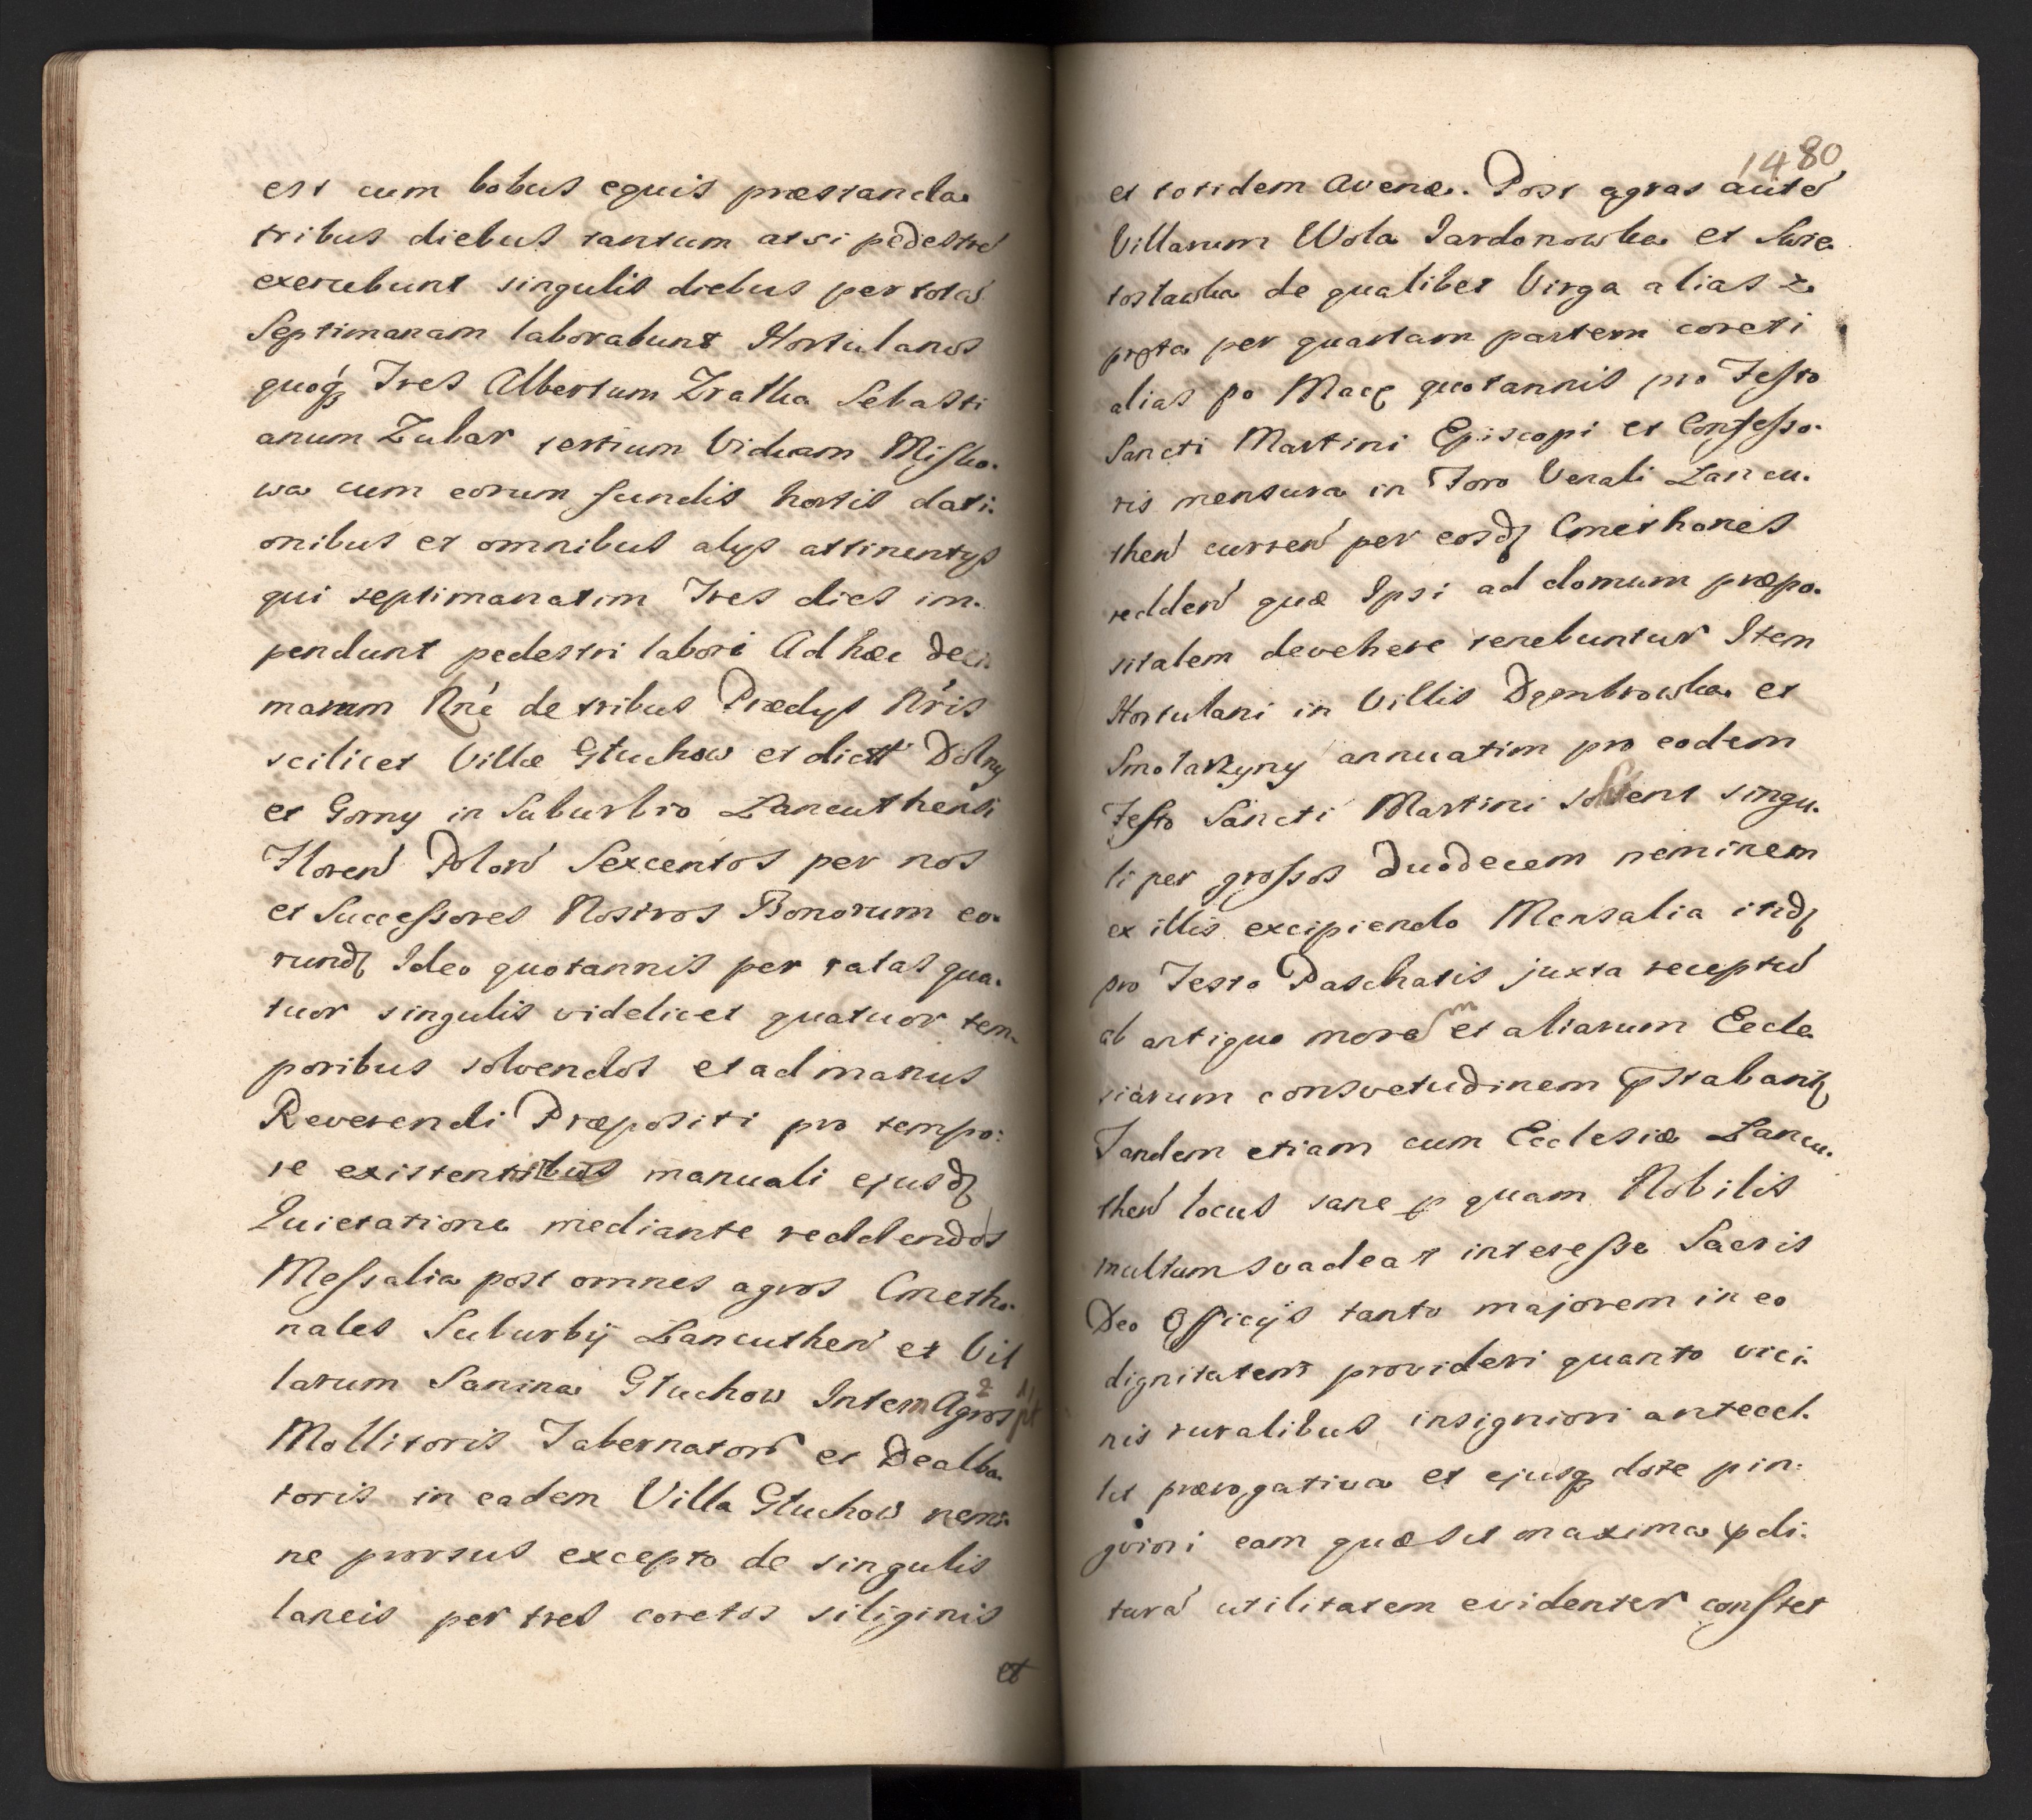 est cum bobus equis præstanda
tribus diebus tantum at si pedestre
exercebunt singulis diebus per totã
Septimanam laborabunt Hortulanos
quoq́ Tres Albertum Zratka Sebasti
anum Zubar tertium Viduam Misko.
wa cum eorum fundis hortis dati.
onibus et omnibus alys attinentys
qui septimanatim Tres dies im.
pendunt pedestri labori Ad hæc deci
marum Rné de tribus Prædys Nris
scilicet Villæ Głuchow et dictt Dolny
et Gorny in Suburbio Lancuthensi
Floreñ Poloñ Sexcentos per nos
et Successores Nostros Bonorum eo.
rundꝫ Ideo quotannis per ratas qua.
tuor singulis videlicet quatuor tem.
poribus solvendos et ad manus
Reverendi Præpositi pro tempo:
re existentibus manuali ejusdꝫ
Quietatione mediante reddendos
Messalia post omnes agros Cmetho.
nales Suburbÿ Lancutheñ et Vil
larum Sanina Głuchow Intem Agros
Mollitoris Tabernatorũ et Dealba.
toris in eadem Villa Głuchow nemi.
ne prorsus excepto de singulis
laneis per tres coretos siliginis
et
1480
et totidem avenæ. Post agras autẽ
Villarum Wola Dardonowka et Swie.
tosławka de qualibet Virga alias z.
pręta per quartam partem coreti
alias po Macę quotannis pro Festo
Sancti Martini Episcopi et Confesso.
ris mensura in Foro Venali Lancu.
theñ curreñ per eosdꝫ Cmethones
reddeñ quæ Ipsi ad domum præpo.
sitalem devehere tenebuntur Item
Hortulani in Villis Dęmbrowka et
Smolarzyny annuatim pro eodem
Festo Sancti Martini solvent singu.
li per grossos duodecem neminem
ex illis excipiendo Mensalia itidꝫ
pro Festo Paschatis juxta receptũ
ab antiquo more m et aliarum Eccle
siarum consvetudinem pstabantꝫ
Tandem etiam cum Ecclesiæ Lancu.
theñ locus sane p quam Nobilis
multum svadeat interesse Sacris
Deo Officÿs tanto majorem in eo
dignitatem provideri quanto vici.
nis ruralibus insigniori antecel.
let prærogativa et ejusq dote pin:
gviori eam quæ sit maxima pdi.
turã utilitatem evidenter constet